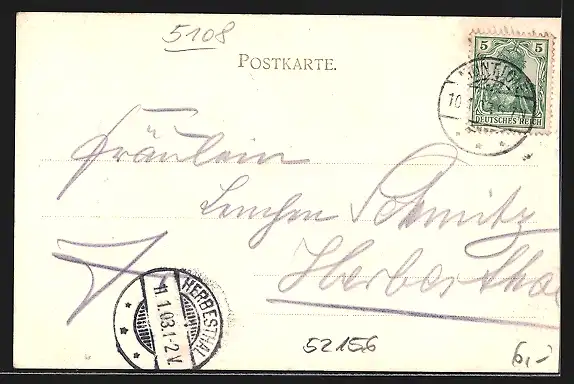 5108
POSTKARTE.
5 5
DEUTSCHES REICH
10
Fräulein
Lenchen Schmitz
Herbesthal
HERBESTHAL
11.1.03.1-2V.
52156
6,-